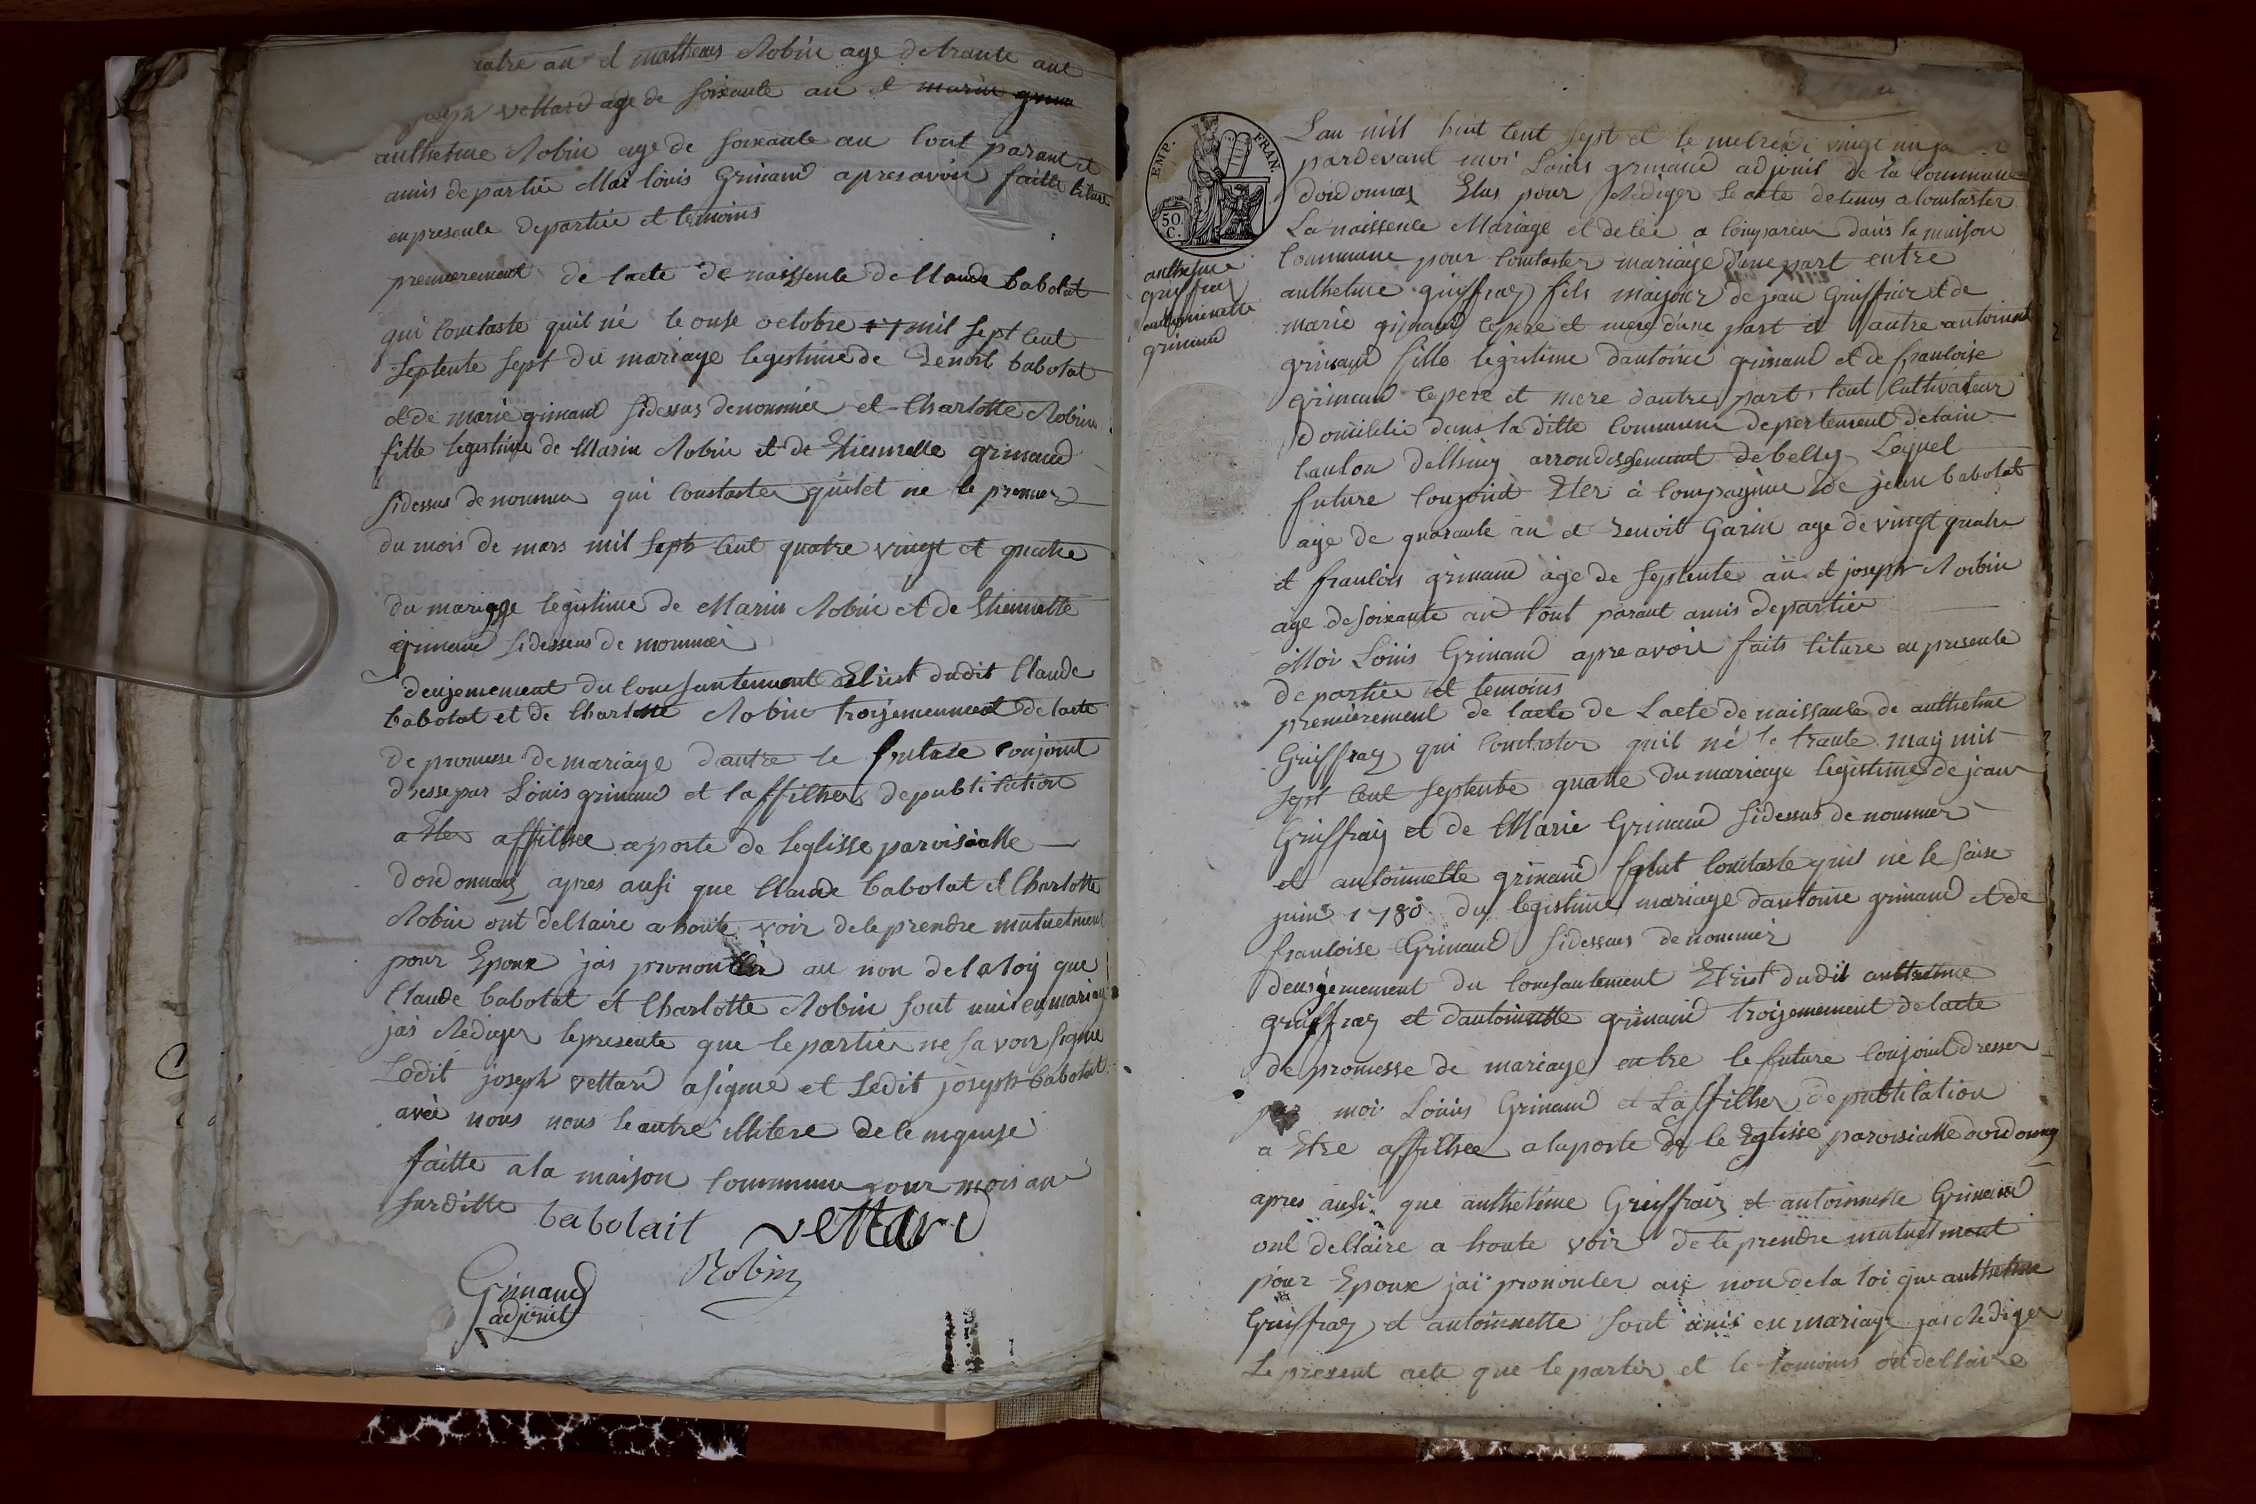 atre an et matheus Robin age de trante ane
joseph vettard age de soixante an et marin grima
anthelme Robin age de soixante an tout parant et
amis de partie Moi louis Grimand apres avoir faitte liture
en presente de partie et temoins
premierement de lacte de naissente de Claude babolat
qui Contaste quil né le onse octobre 17 mil sept Cent
septente sept du mariage legestime de Benoit babolat
et de marie grimand sidessus denommée et Charlotte Robin
fille legestime de Marin Robin et de Etiennette grimand
sidessus denommer qui Constaste quilet ne le premier
du mois de mars mil sept Cent quatre vingt et quatre
du mariage legistime de Marin Robin et de Etiennette
grimand sidessus de nommer
deusjemement du Consantement Etrist dudit Claude
babolat et de Charlotte Robin troijemement de lacte
de promesse de mariage dantre le future Conjoint
dresse par Louis grimand et laffilher de publication
a Eter affilhee a porte de leglisse paroisialle
dordonnaz apres ausi que Claude babolat et Charlotte
Robin ont dellaire a houte voir de le prendre mutuelment
pour Epoux jai prononcer au non de la loy que
Claude babolat et Charlotte Robin sont unit en mariage
jai Rediger lepresente que le partie ne savoir signe
Ledit joseph vettard a signe et Ledit joseph babolat
avec nous nous le autre illitere de le enquise
faitte a la maison Commune jour mois an
surditte
babolait vettard
Grimand Robin
adjoint
EMP. FRAN.
50. C.
anthelme
griffraz
antoinette
grimand
Lan mil huit Cent sept et le mecredi vingt un
pardevant moi Louis grimand adjoint de la Commune
dordonnaz Elus pour Rediger le acte detenus a Contaster
La naissence Mariage et decee a Comparin dans la maison
Commune pour Contaster mariage dune part entre
anthelme guiffraz fils majour de jean Griffraz et de
marie grimand lepere et mere dune part et autre antoinent
grimand fille legitime dantoine grimand et de francoise
grimand lepere et mere dautre part, tout Cultivateur
domicilie dans la ditte Commune depertement delain
Canton delhuis arrondissement de belly Lequel
future Conjoint Eter a Compagnue de jean babolat
age de quarante an et Benoit Garin age de vingt quatre
et francois grimand age de septente an et joseph Robin
age de soixante an tout parant amis de partie
Moi Louis Grimand apre avoir faits liture en presente
de partie et temoins
premierement de lacte de Lacte de naissante de anthelme
Griffraz qui Contaster quil né le trante may mil
sept Cent septente quatre du mariage legistime de jean
Griffraz et de Marie Grimand sidessus de nommer
et antoinnette grimand Contaste quil né le saise
juin 1780 du legistime mariage dantoine grimand et de
francoise Grimand sidessus de nommer
deusjemement du Consantement Etrist dudit anthelme
griffraz et dantoinette grimand troijemement de lacte
de promesse de mariage entre le future Conjoint dresser
par moi Louis Grimand et Laffilher de publication
a Etre affilhee a laporte de le Eglisse paroisialle dordonnaz
apres ausi que anthelme Griffraiz et antoinnette Grimand
ont dellaire a houte voir de le prendre mutuelment
pour Epoux jai prononcer au non de la loi que anthelme
Griffraz et antoinnette sont unis en mariage jai Rediger
Le present acte que le partie et le temoins on dellaire